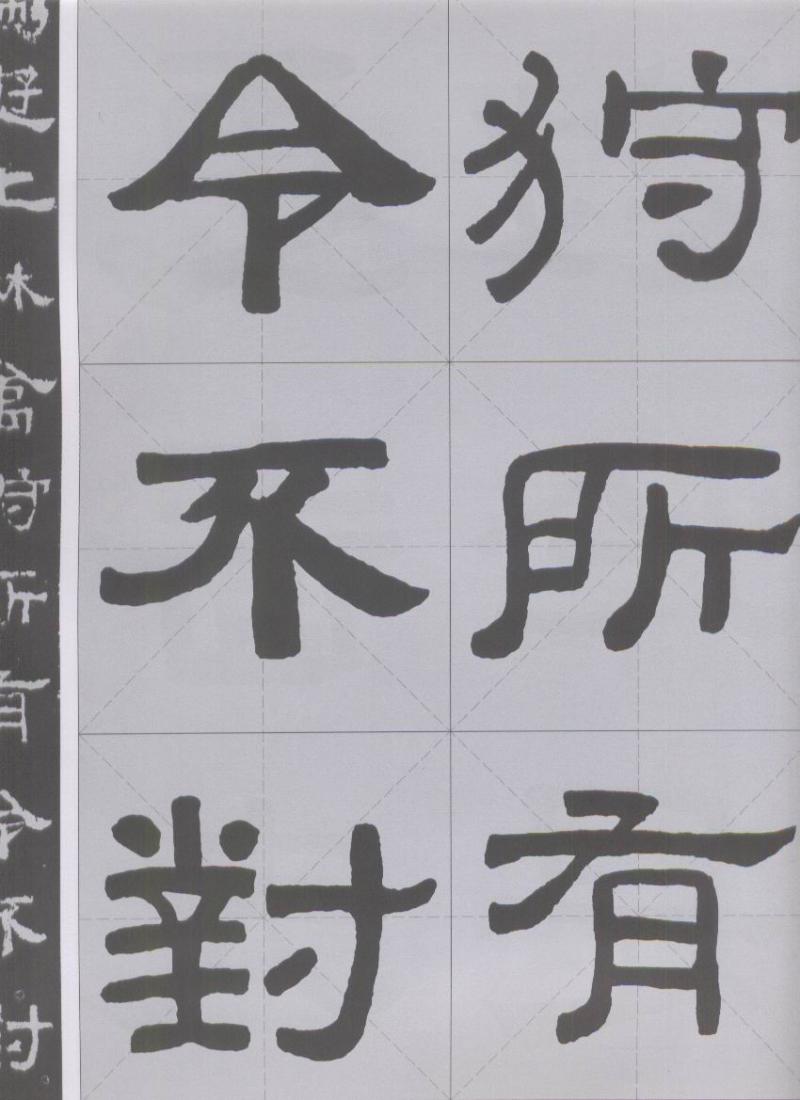 狩所有
令不對
上林禽狩所有令不對